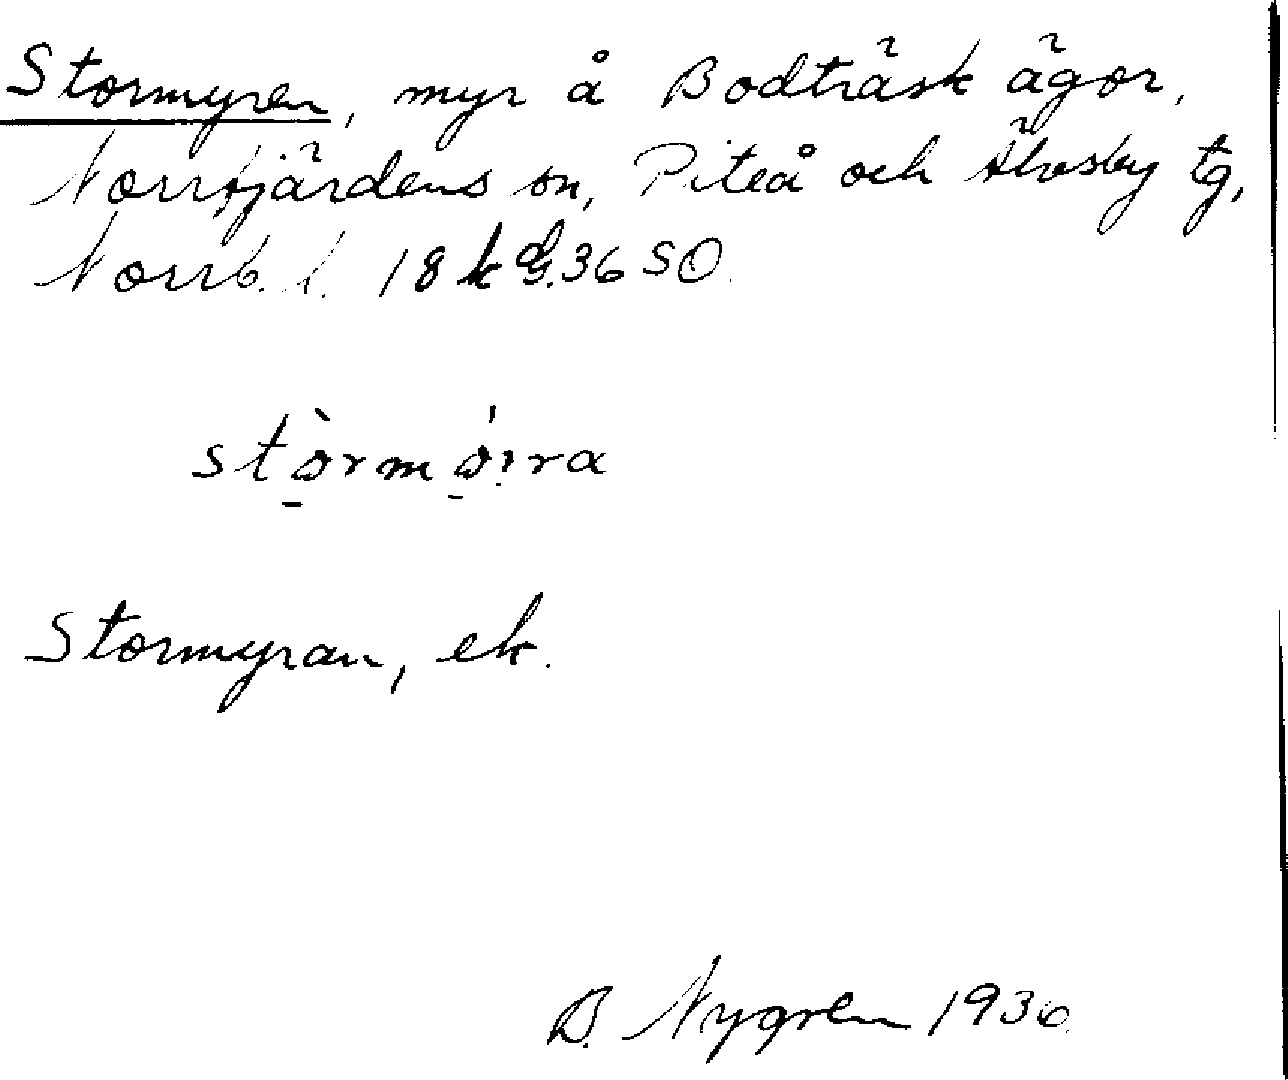 Stormyren, myr å Bodträsk ägor,
Norrfjärdens sn, Piteå och Älvsby tg,
Norrb. l. 18 k 36 SO.
stòrmóira
Stormyran, ek.
B. Nygren 1936